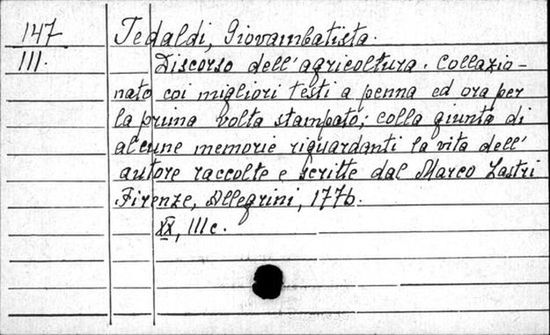 147 Tedaldi, Giovambatista.
III. Discorso dell'agricoltura. Collazio-
nato coi migliori testi a penna ed ora per
la prima volta stampato; colla giunta di
alcune memorie riguardanti la vita dell'
autore raccolte e scritte dal Marco Lastri
Firenze, Allegrini, 1776.
XX, III c.